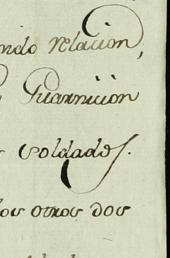 ndo relacion,
Guarnicion
soldados.
los otros dos